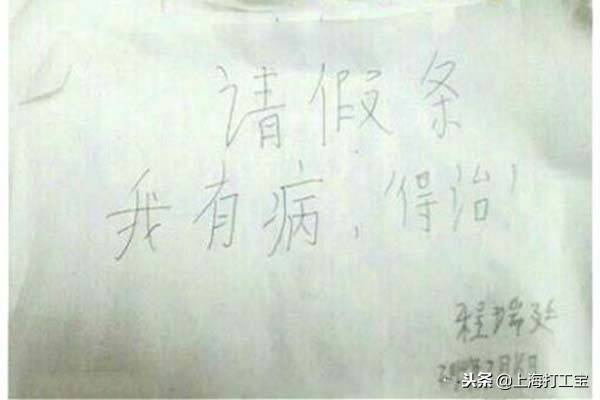 请假条
我有病，“得治”
程瑞廷
头条 @上海打工宝